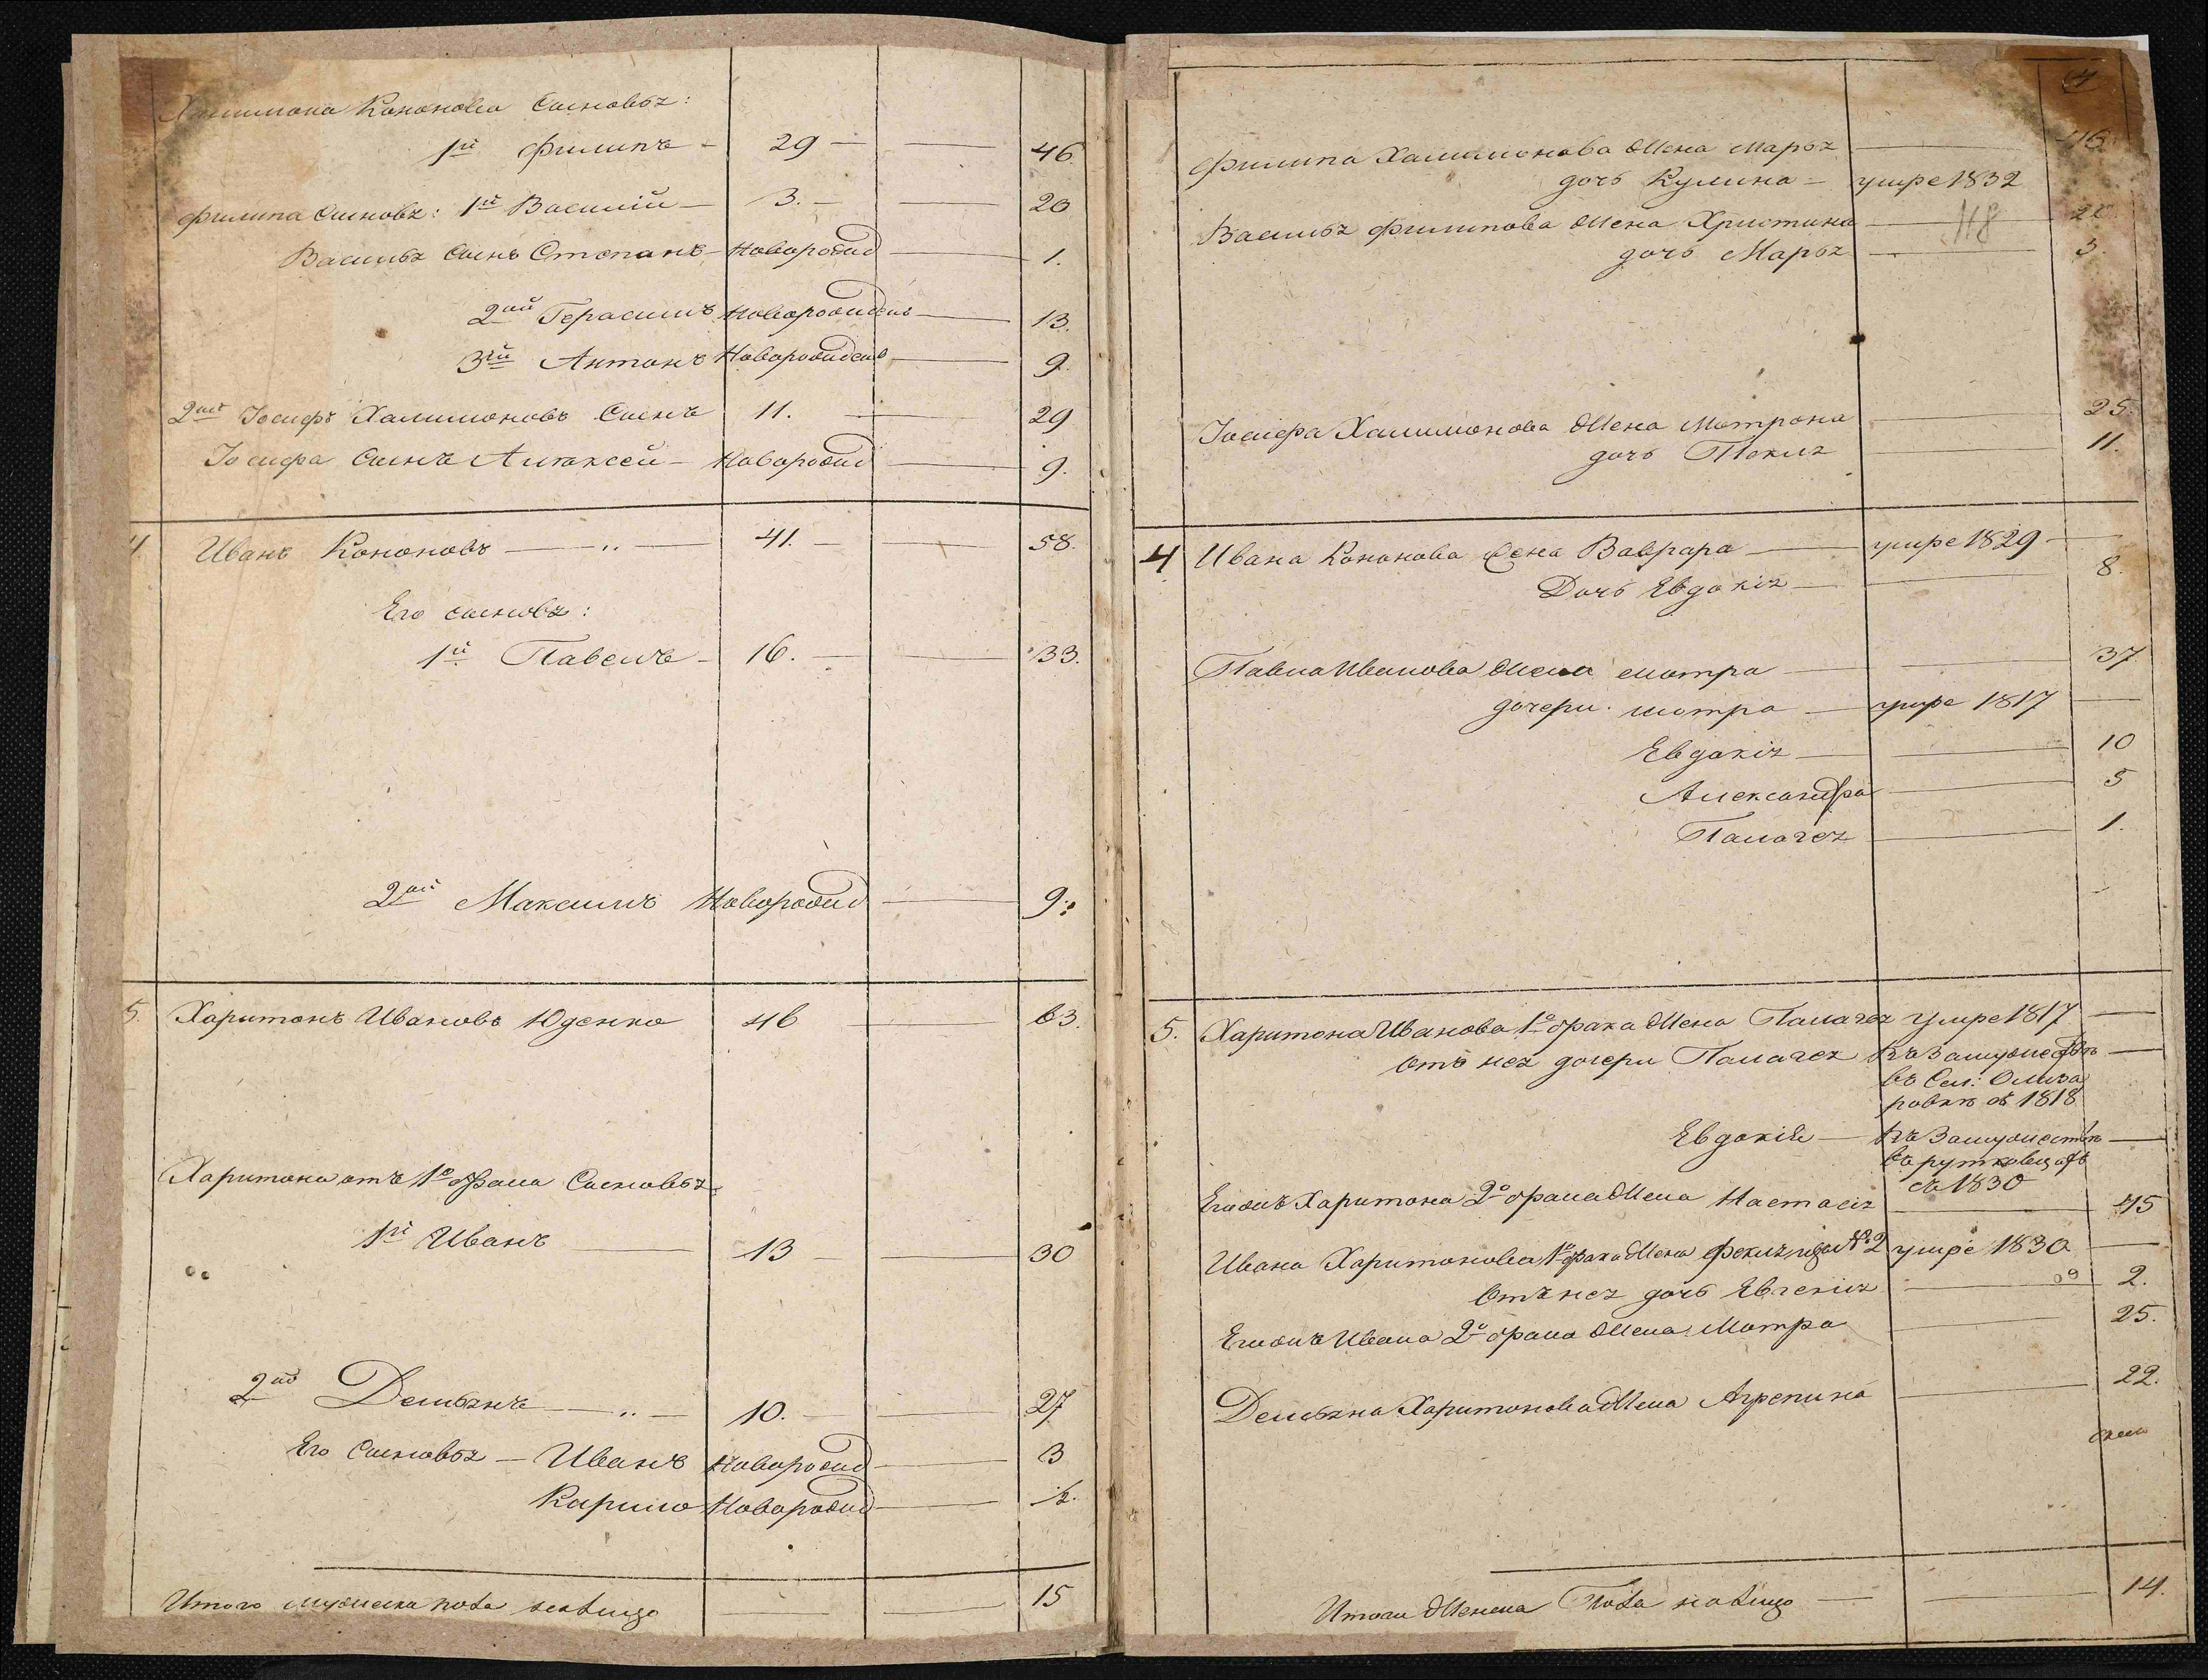 Халимона Кононова Сыновья:
1й Филипъ - 29 — — 46.
Филипа Сыновья: 1й Василій — 3. — — 20
Василья Сынъ Степанъ — Новорожд — 1.
2ой Герасимъ Новорожденъ — 13.
3ій Антонъ Новорожденъ — 9.
2ой Іосифъ Халимоновъ Сынъ 11. — 29
Іосифа Сынъ Алексей — Новорожд — 9.
4. Иванъ Кононовъ — „ — 41. — — 58.
Его сыновья:
1й Павелъ — 16. — — 33.
2ой Максимъ Новорожд — 9.
5. Харитонъ Ивановъ Юденко 46 — 63.
Харитона отъ 1о брака Сыновья
1й Иванъ — 13 — — 30
2ой Демьянъ — „ — 10. — — 27
Его Сыновья — Иванъ Новорожд — 3
Карпило Новорожд —
Итого мужеска пола налицо — — 15
4
Филипа Халимонова Жена Марья — 46.
дочь Кулина — умре 1832
118
Василья Филипова Жена Христина —
дочь Марья — 3.
Іосифа Халимонова Жена Мотрона — 25.
дочь Текля — 11.
4 Ивана Кононова Жена Варвара — умре 1829 —
Дочь Евдокія — 8.
Павла Иванова Жена Мотра — 37
дочери Мотра — умре 1817 —
Евдокія — 10
Александра — 5
Палагея — 1.
5. Харитона Иванова 1о брака Жена Палагея умре 1817 —
Отъ нея дочери Палагея Въ Замужествѣ —
въ Сел: Олиза
ровкѣ съ 1818
Евдокія — Въ Замужествѣ —
съ 1830
Егожъ Харитона 2о брака Жена Настасія — 45
Ивана Харитонова 1о брака Жена Фекла № 2 умре 1830 —
Отъ нея дочь Евгенія — 2.
Егожъ Ивана 2о брака Жена Мотра — 25.
Демьяна Харитонова Жена Агрепина — 22.
Итого Женска Пола налицо — — 14.